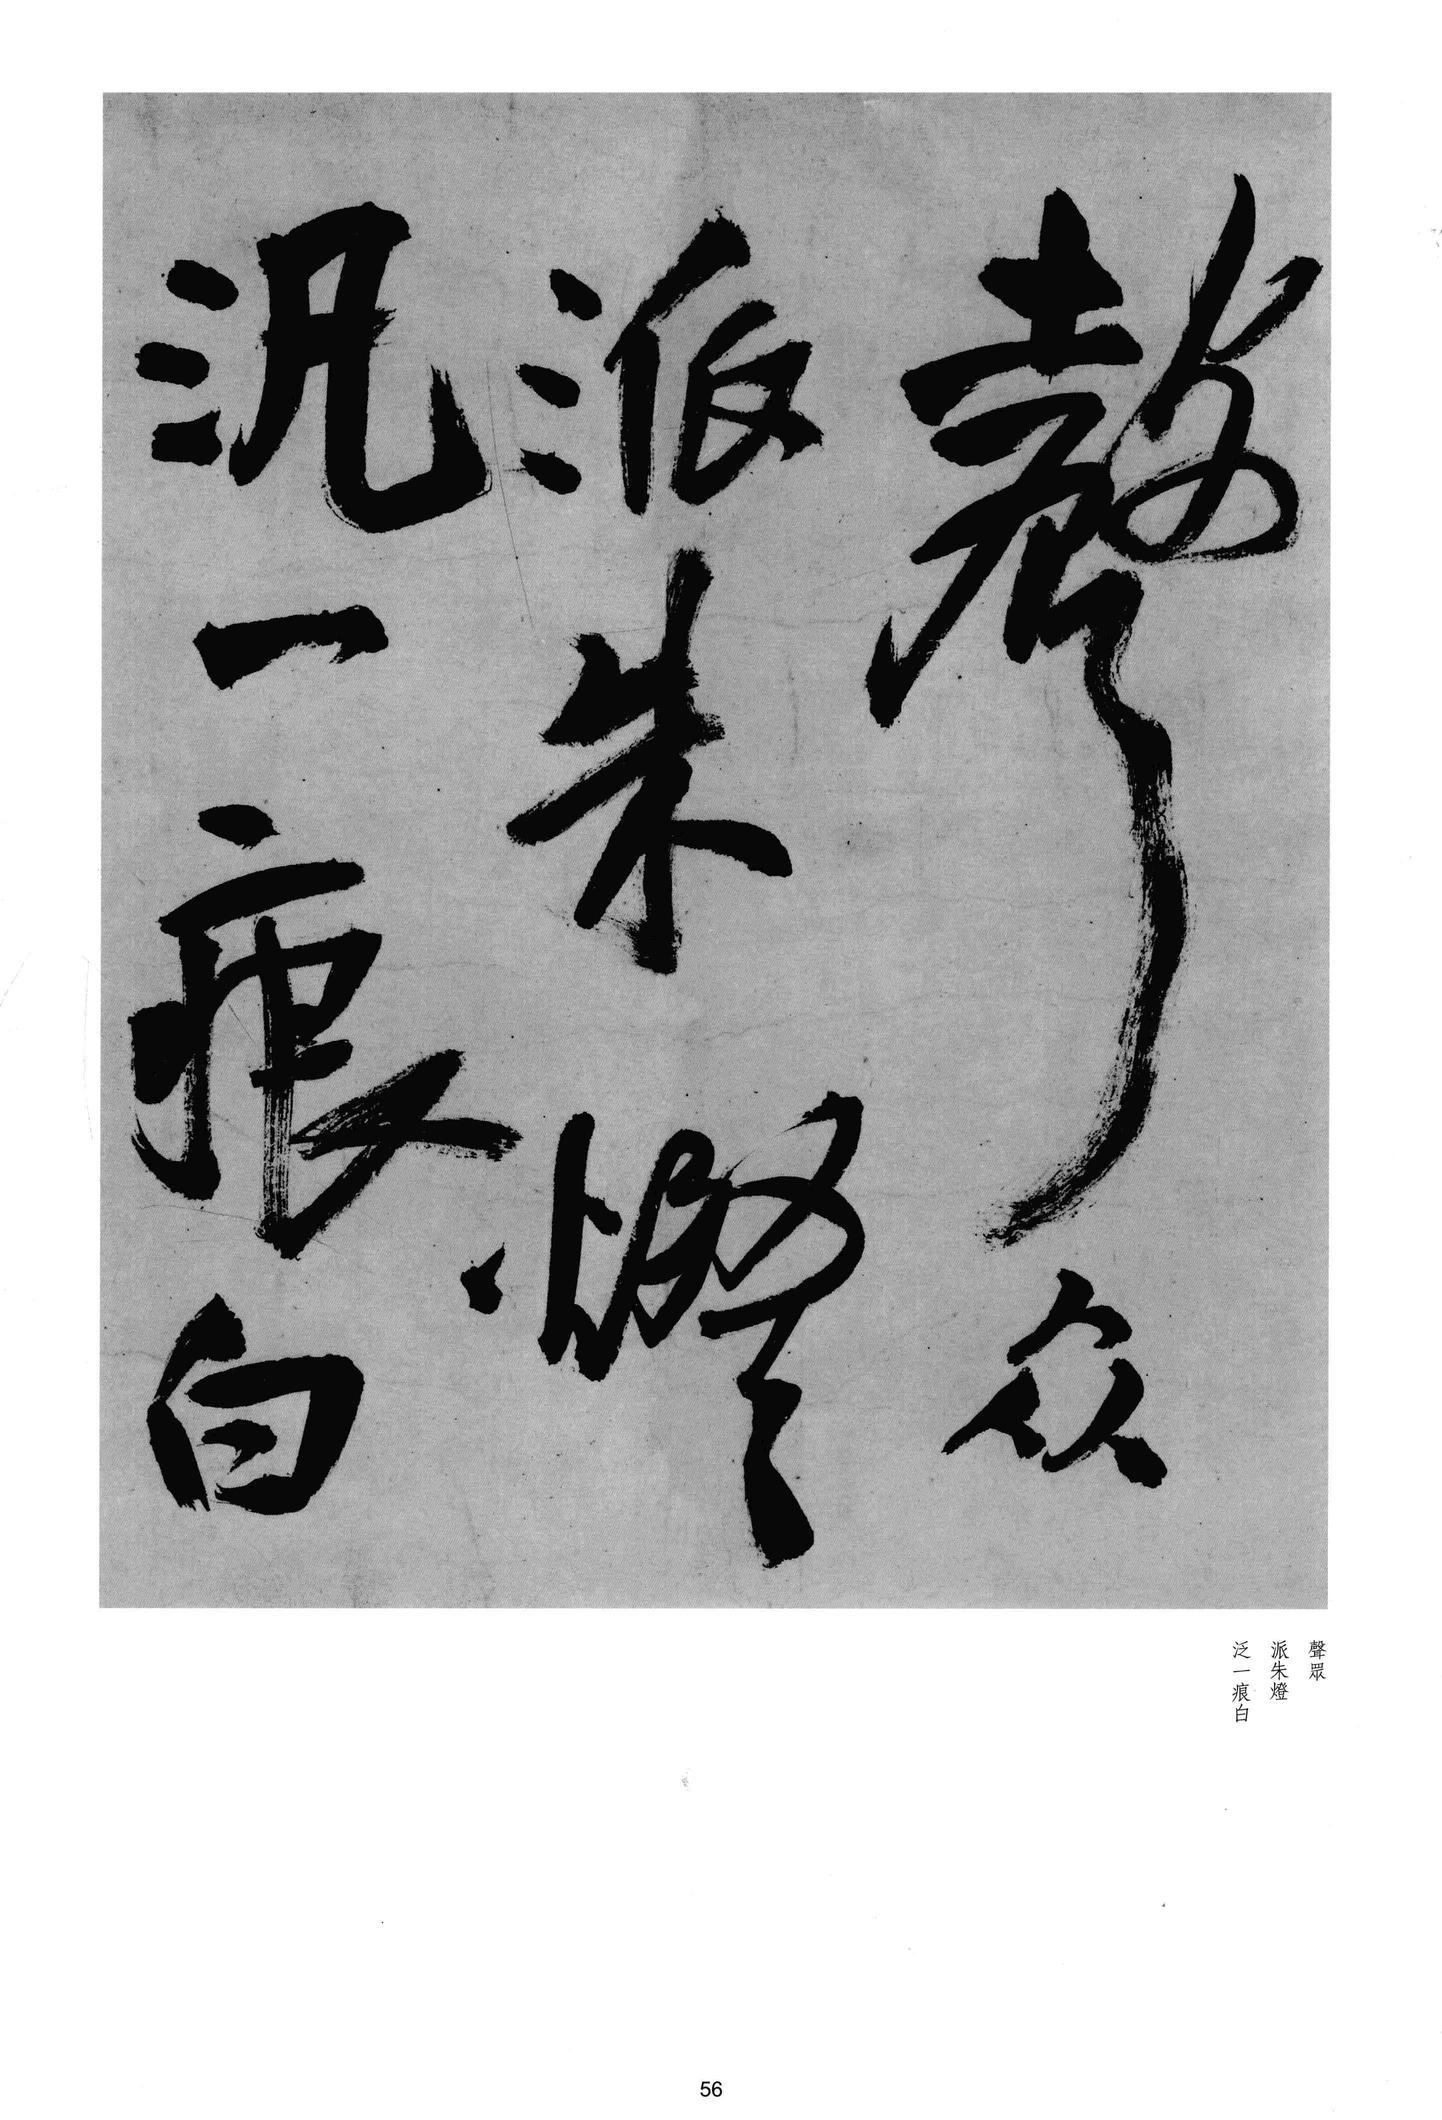 聲众
派朱燈
汎一痕白
聲眾
派朱燈
泛一痕白
56